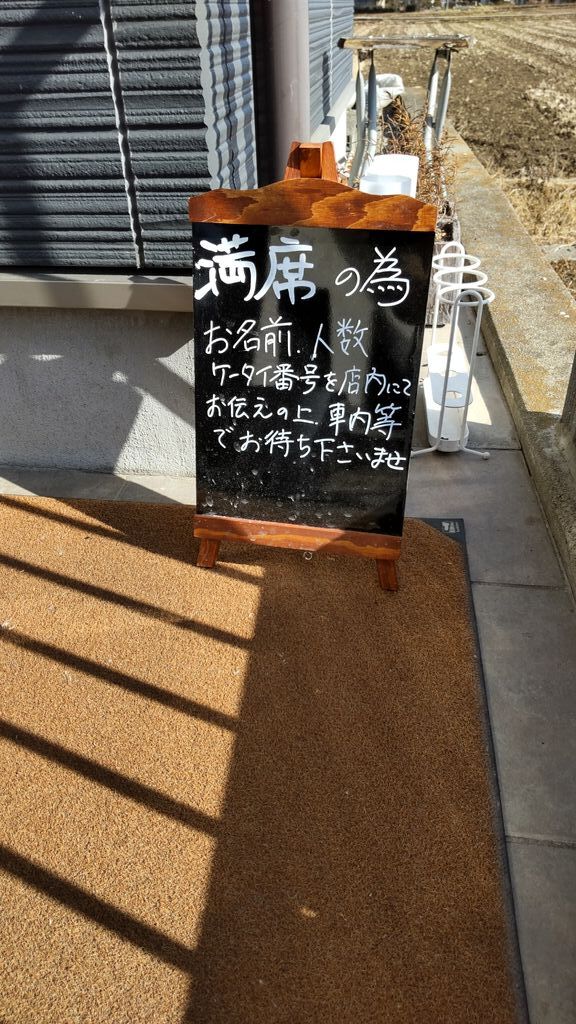 満席の為
お名前.人数
ケータイ番号を店内にて
お伝えの上.車内等
でお待ち下さいませ